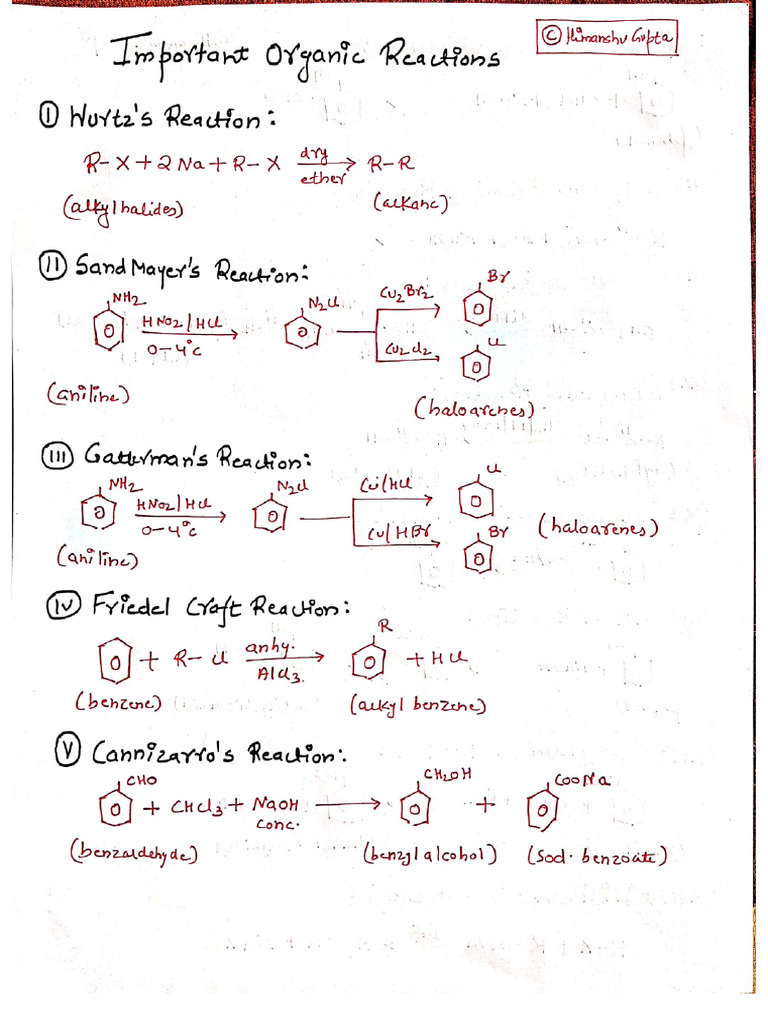 © Himanshu Gupta
Important Organic Reactions
I Wurtz's Reaction:
R-X + 2Na + R-X dry ether → R-R
(alkylhalides) (alkane)
II SandMayer's Reaction:
NH2 HNO2/HCl 0-4°C → N2Cl Cu2Br2 → Br
Cu2Cl2 → Cl
(aniline) (haloarenes).
III Gatterman's Reaction:
NH2 HNO2/HCl 0-4°C → N2Cl Cu/HCl → Cl
Cu/HBr → Br (haloarenes)
(aniline)
IV Friedel Craft Reaction:
+ R-Cl anhy. AlCl3. → R + HCl
(benzene) (alkyl benzene)
V Cannizarro's Reaction:
CHO + CHCl3 + NaOH conc. → CH2OH + COONa
(benzaldehyde) (benzyl alcohol) (Sod. benzoate)